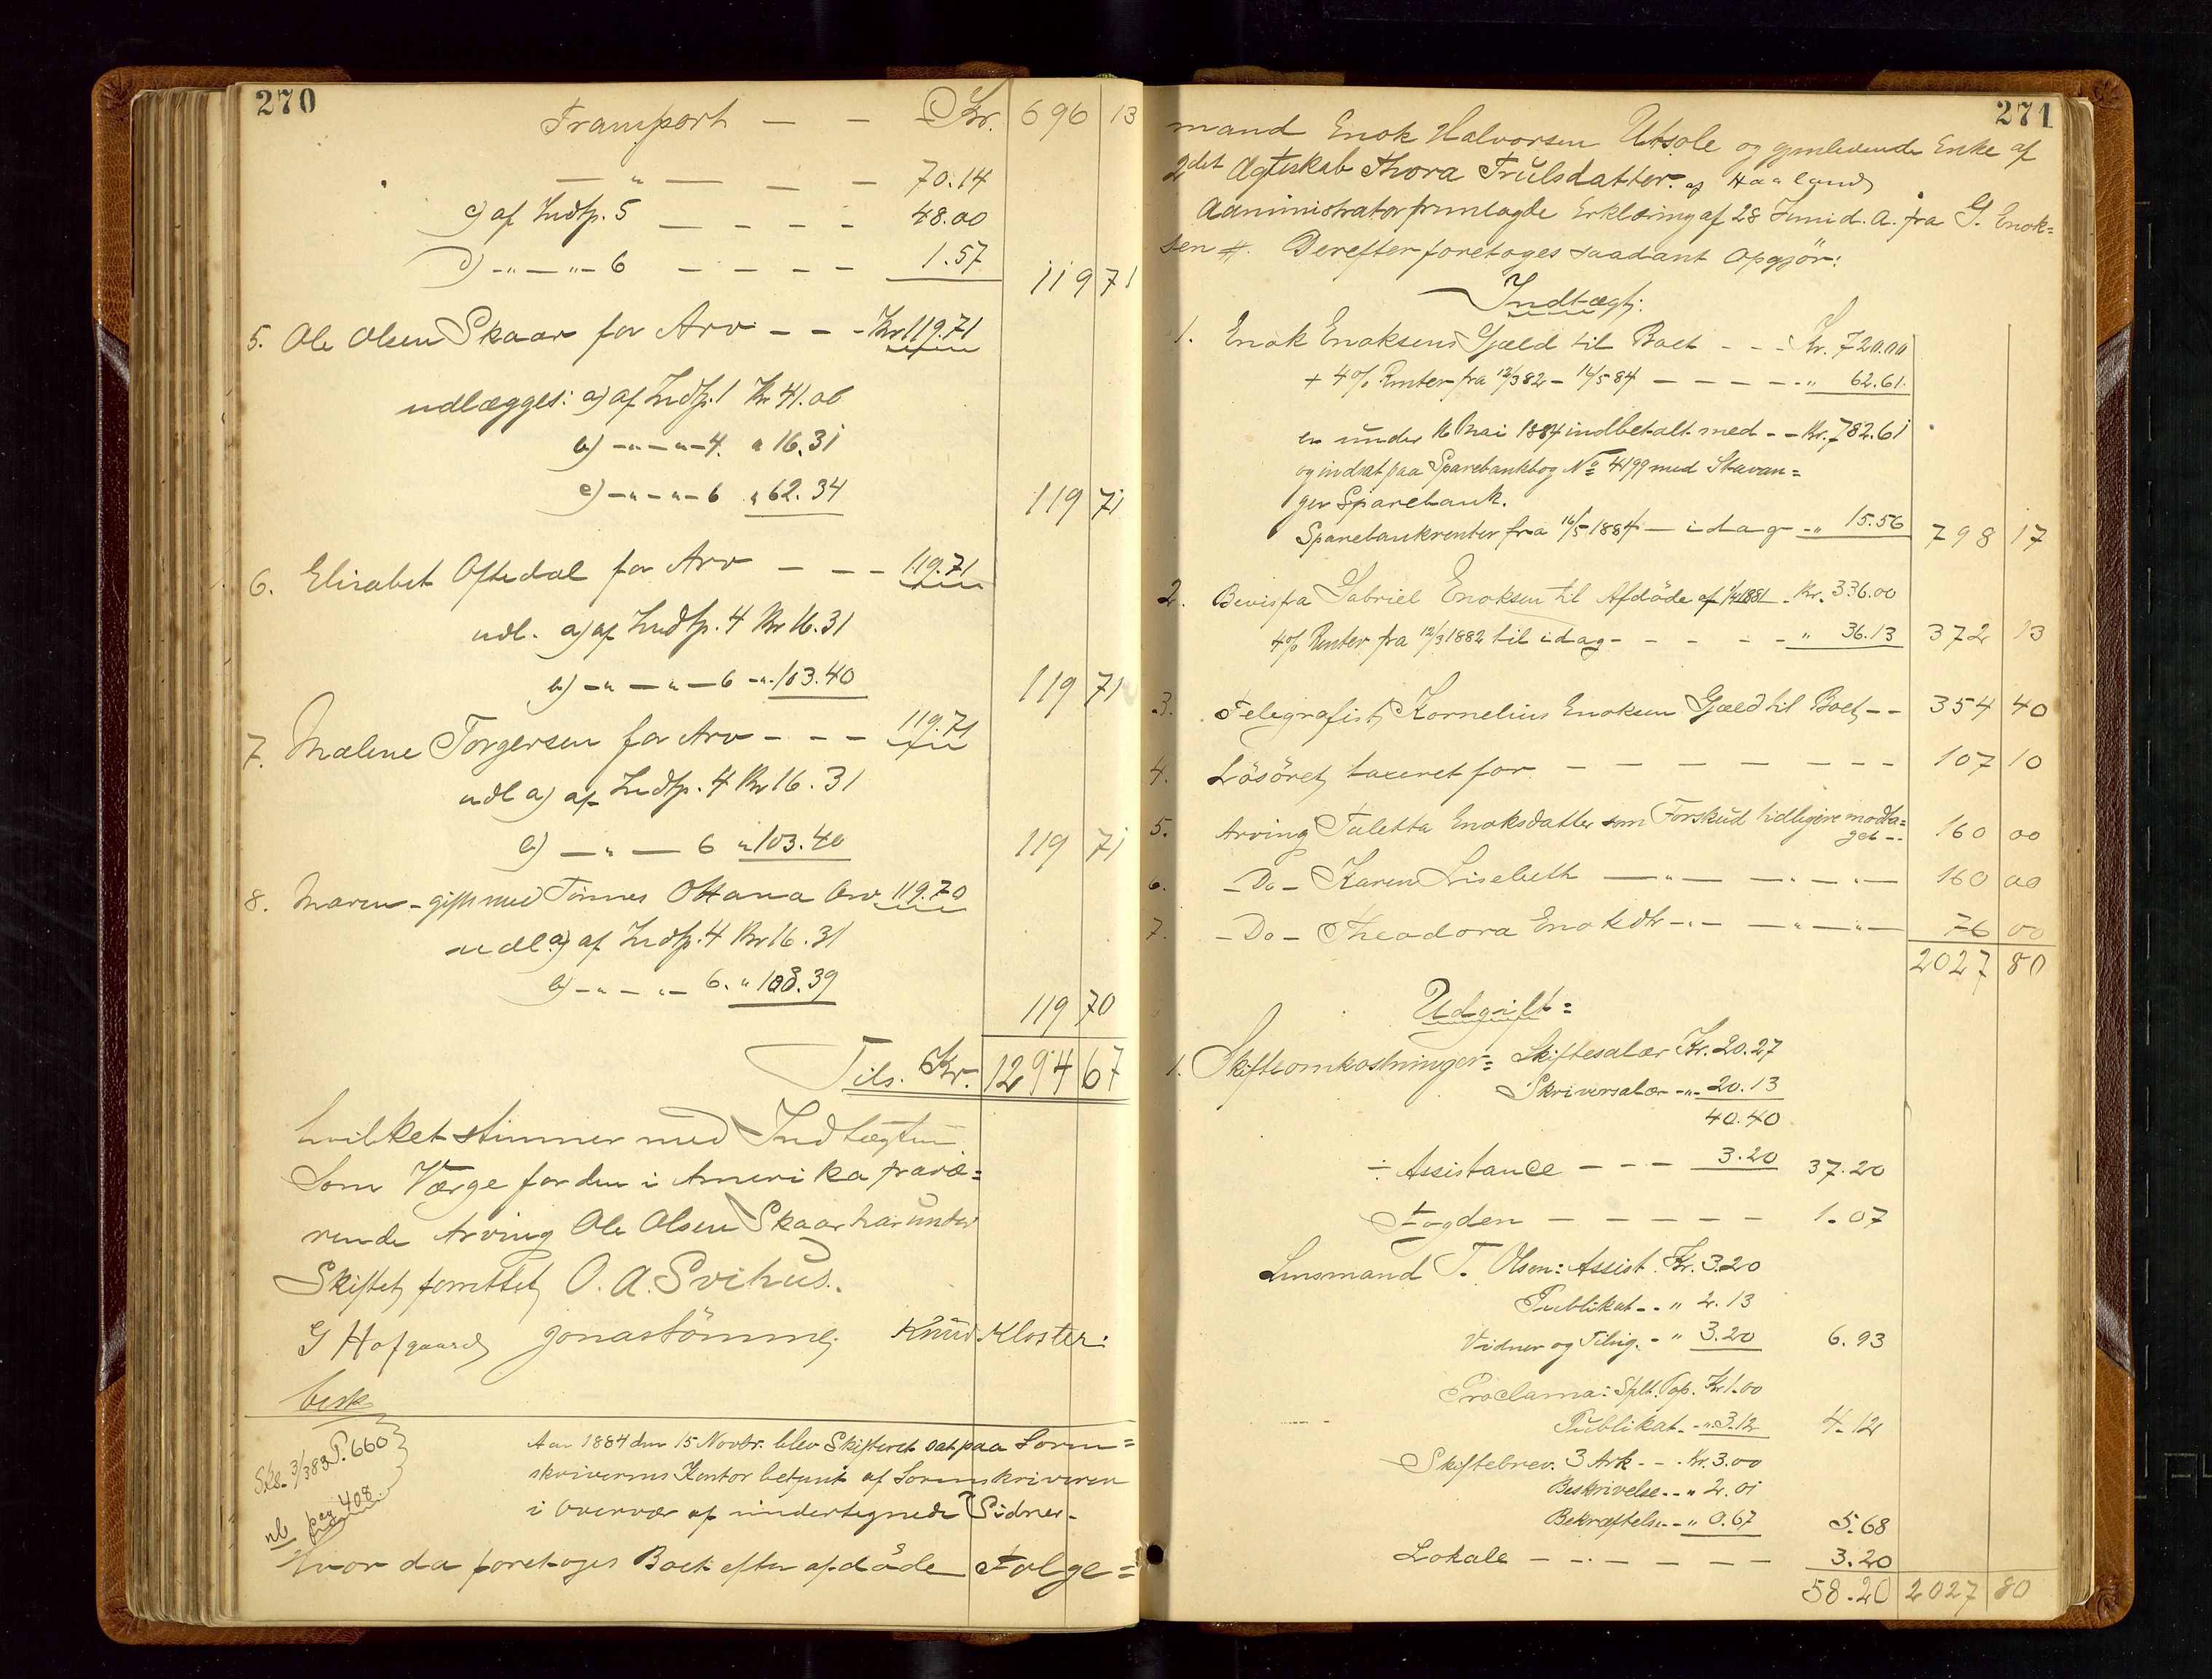 270
Transport — — Kr. 696 13
— " — — — 70.14
c) af Indtp. 5 — — — — 48.00
d) -"- — "- 6 — — — — 1.57 119 71
5. Ole Olsen Skaar for Arv — — - Kr 119.71
udlægges: a) af Indtp. 1 Kr 41.06
b) -"- — "- 4. " 16.31
c) -"- — "- 6 " 62.34 119 71
6. Elisabet Oftedal for Arv — — - 119.71
udl. a) af Indtp. 4 Kr 16.31
b) -"- — "- 6 -"- 103.40 119 71
7. Malene Torgersen for Arv — — — 119.71
udl a) af Indtp. 4 Kr 16.31
b) — " — 6 " 103.40 119 71
8. Maren - gift med Tönnes Ottana Arv. 119.70
udl. a) af Indtp. 4 Kr 16.31
b) -"- — "- 6. " 103.39
119 70
Tils. Kr. 1294 67
hvilket stimmer med Indtægten
Som Værge for den i Amerika fravæ=
rende Arving Ole Olsen Skaar har under
Skiftet forrettet O. A. Svihus.
G Hofgaard Jonas Tömme Knud Kloster.
besk
Skb. 3/3 83 P. 660
nb pag 408
Aar 1884 den 15 Novbr. blev Skifteret sat paa Soren=
skriverens Kontor betjent af Sorenskriveren
i Overvær af undertegnede Vidner.
Hvor da foretoges Boet efter afdöde Folge=
271
mand Enok Halvorsen Utsole og gjenlevende Enke af
2det Ægteskab Thora Trulsdatter. af Haaland
Administrator fremlagde Erklæring af 28 Juni d. A. fra G. Enok=
sen #. Derefter foretoges saadant Opgjör:
Indtægt:
1. Enok Enoksens Gjæld til Boet - - - Kr. 720.00
+ 4 % Renter fra 12/3 82 - 16/5 84 — — — — - " 62.61.
er under 16 Mai 1884 indbetalt med - - Kr. 782.61
og indsat paa Sparebankbog No 4199 med Stavan=
ger Sparebank.
Sparebankrenter fra 16/5 1884 — idag - " 15.56 798 17
2. Bevis fra Gabriel Enoksen til Afdöde af 1881 - Kr. 336.00
4 % Renter fra 12/3 1882 til idag - - - - - " 36.13 372 13
3. Telegrafist Kornelius Enoksen Gjæld til Boet - - 354 40
4. Lösöret taxeret for — — — — — — — — 107 10
5. Arving Taletta Enoksdatter som Forskud tidligere modta=
get - - 160 00
6. - Do - Karen Lisebeth — " — — " — " — 160 00
7. - Do - Theodora Enoksdtr - " - — " — " — 76 00
2027 80
Udgift =
1. Skifteomkostninger = Skiftesalær Kr. 20.27
Skriversalær - " - 20.13
40.40
÷ Assistance — — — 3.20 37.20
Fogden — — — — — 1.07
Lensmand T. Olsen: Assist. Kr. 3.20
Publikat - - " 2.13
Vidner og Tilsig. - " 3.20 6.93
Proclama: Splt. Pap. Kr 1.00
Publikat - " 3.12 4.12
Skiftebrev. 3 Ark - - - Kr. 3.00
Beskrivelse - - " 2.01
Bekræftelse - - " 0.67 5.68
Lokale — — — — — — 3.20
58.20 2027 80